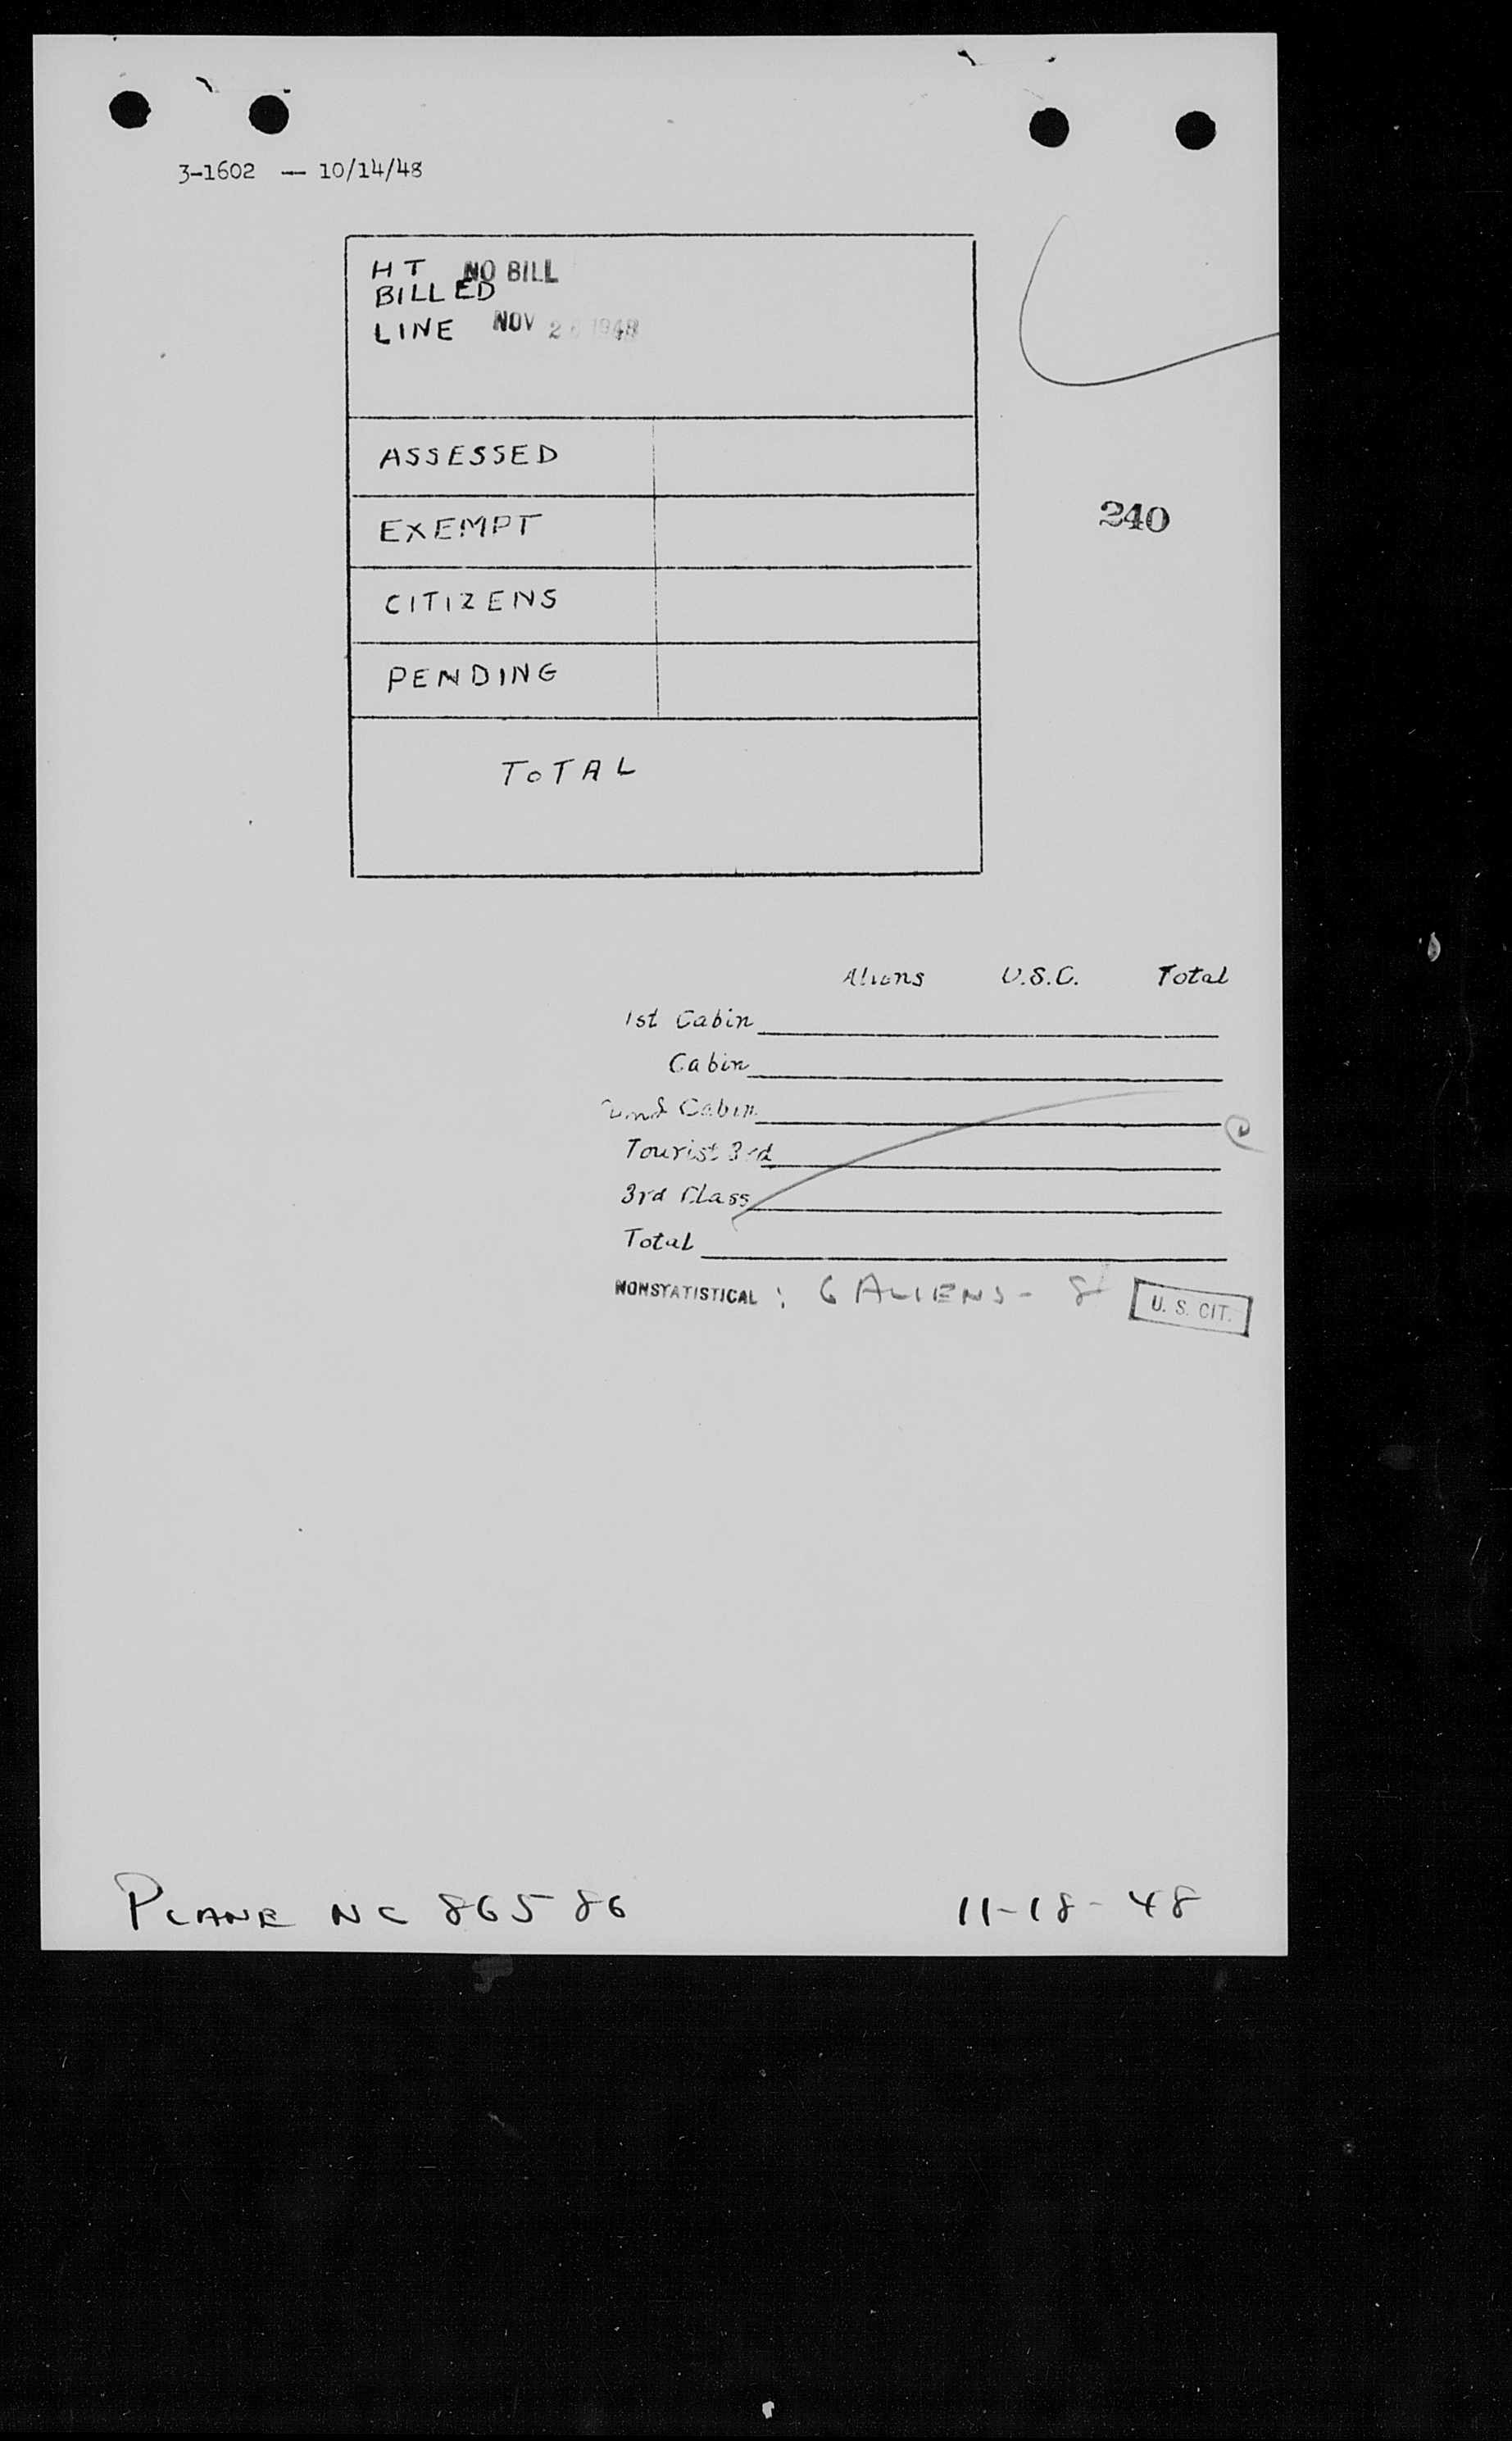 3-1602 — 10/14/48
HT NO BILL
BILLED
LINE NOV 2 1948
ASSESSED
EXEMPT
240
CITIZENS
PENDING
TOTAL
Aliens U.S.C. Total
1st Cabin
Cabin
Cabin
Tourist 3rd
3rd Class
Total
NONSTATISTICAL : 6 ALIENS - 8 U. S. CIT.
PLANE NC 86586 11-18-48